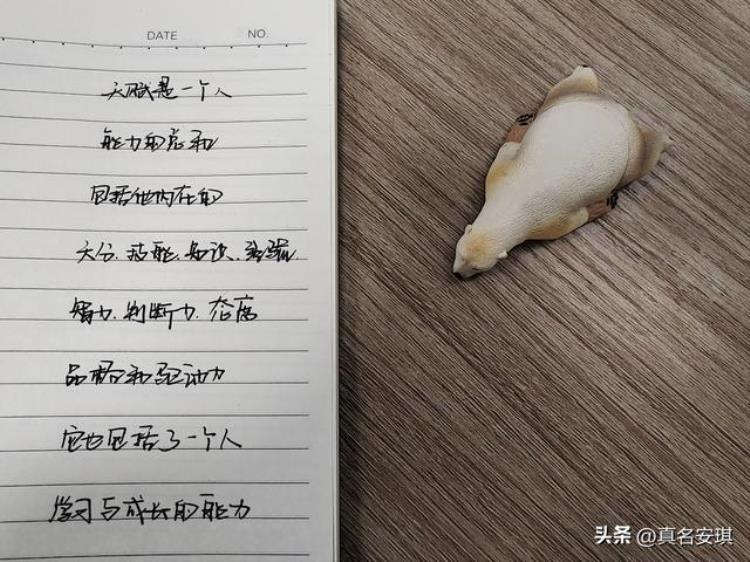 DATE NO.
天赋是一个人
能力的总和
包括他内在的
天分、技能、知识、经验、
智力、判断力、态度
品格和驱动力
它也包括了一个人
学习与成长的能力
头条 @真名安琪